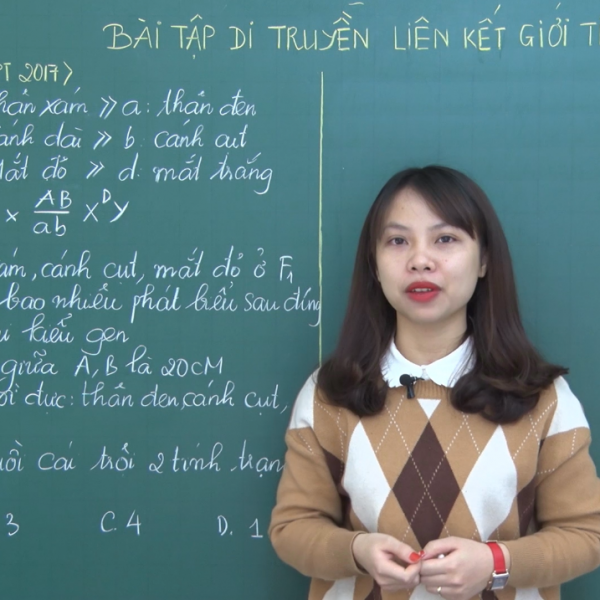 BÀI TẬP DI TRUYỀN LIÊN KẾT GIỚI T
PT 2017>
hân xám >> a: thân đen
ánh dài >> b: cánh cụt
Mắt đỏ >> d: mắt trắng
× AB/ab X^D Y
ám, cánh cụt, mắt đỏ ở F1
bao nhiêu phát biểu sau đúng
u kiểu gen
giữa A, B là 20cM
ồi đực: thân đen, cánh cụt,
uồi cái trội 2 tính trạn
3 C. 4 D. 1